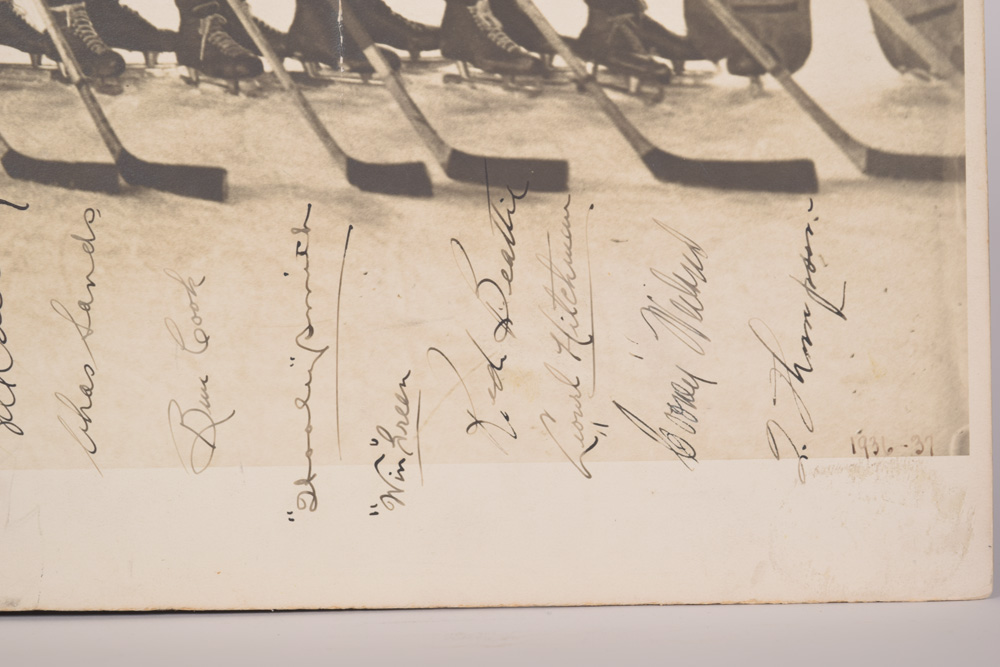 Chas Sands
Bun Cook
"Hooley" Smith
"Win" Green
Red Beattie
Lionel Hitchman
J. Thompson
1936-37